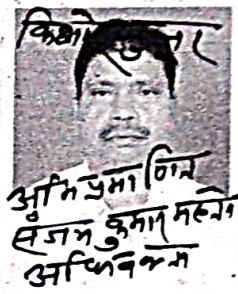 किशोर कुमार
अभिप्रमाणित
संजय कुमार महतो
अधिवक्ता